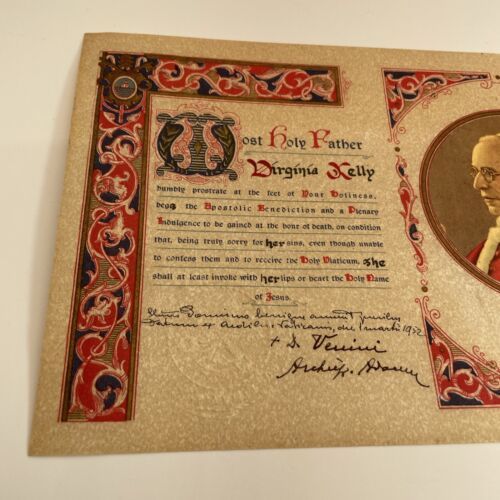 Most Holy Father
Virginia Kelly
humbly prostrate at the feet of Your Holiness,
begs the Apostolic Benediction and a Plenary
Indulgence to be gained at the hour of death, on condition
that, being truly sorry for her sins, even though unable
to confess them and to receive the Holy Viaticum, she
shall at least invoke with her lips or heart the Holy Name
of Jesus.
benigne annuit
Datum ex Aedibus Vaticanis, die 1 martii 1952
+ D. Venini